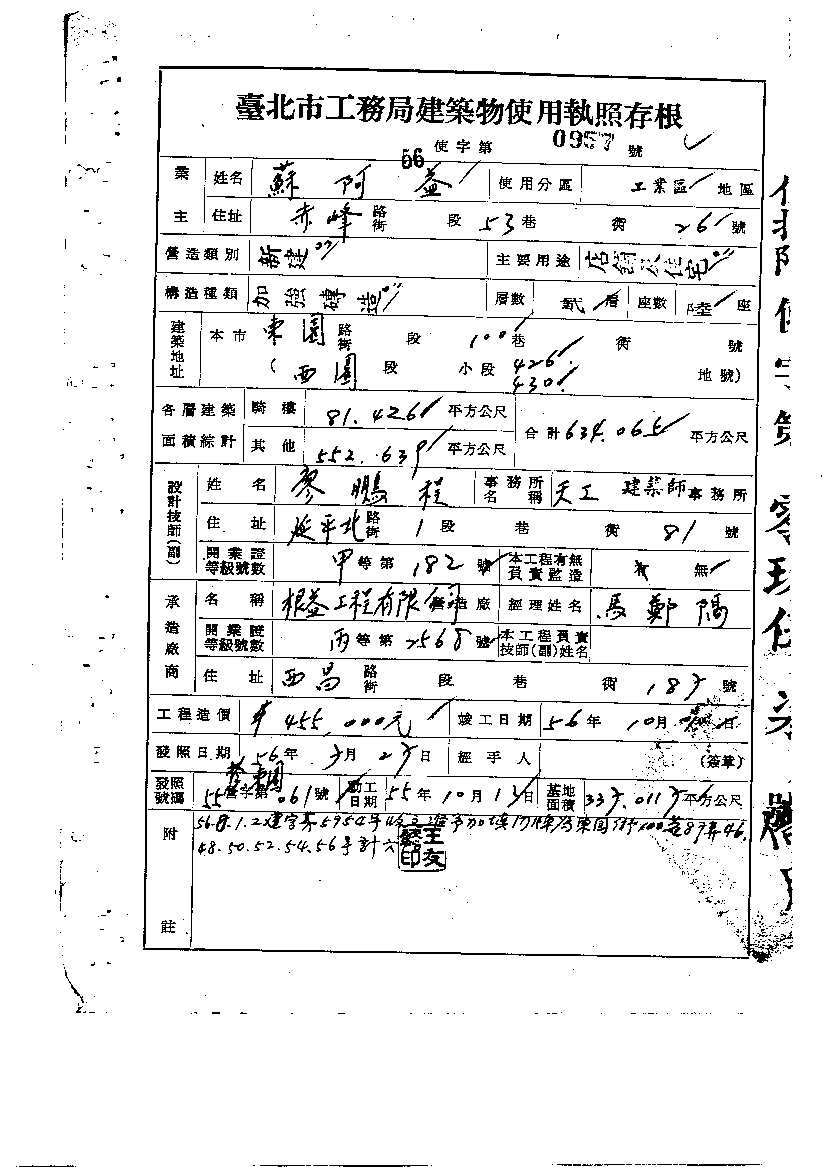 臺北市工務局建築物使用執照存根
56 使字第 0957 號
業主 姓名 蘇阿益 使用分區 工業區 地區
住址 赤峰 路街 段 53 巷 街 26 號
營造類別 新建 主要用途 店舖及住宅
構造種類 加強磚造 層數 貳層 座數 陸座
建築地址 本市 東園 路街 段 100 巷 街 號
( 西園 段 小段 426 430 地號)
各層建築面積綜計 騎樓 81.426 平方公尺 合計 634.065 平方公尺
其他 552.639 平方公尺
設計技師(副) 姓名 廖鵬程 事務所名稱 天工 建築師事務所
住址 延平北 路街 1 段 巷 街 81 號
開業證等級號數 甲等第 182 號 本工程有無負責監造 有 無
承造廠商 名稱 根益工程有限公司 營造廠 經理姓名 馬鄭隔
開業證等級號數 丙等第 2568 號 本工程負責技師(副)姓名
住址 西昌 路街 段 巷 街 187 號
工程造價 455,000元 竣工日期 56年 10月 日
發照日期 56年 月 27日 經手人 (簽章)
發照號碼 55 營字第 061 號 動工日期 55年10月13日 基地面積 平方公尺
附註 56.8.1.2建字第5954號 加 門牌為東園街100巷87弄46.
48.50.52.54.56号計六